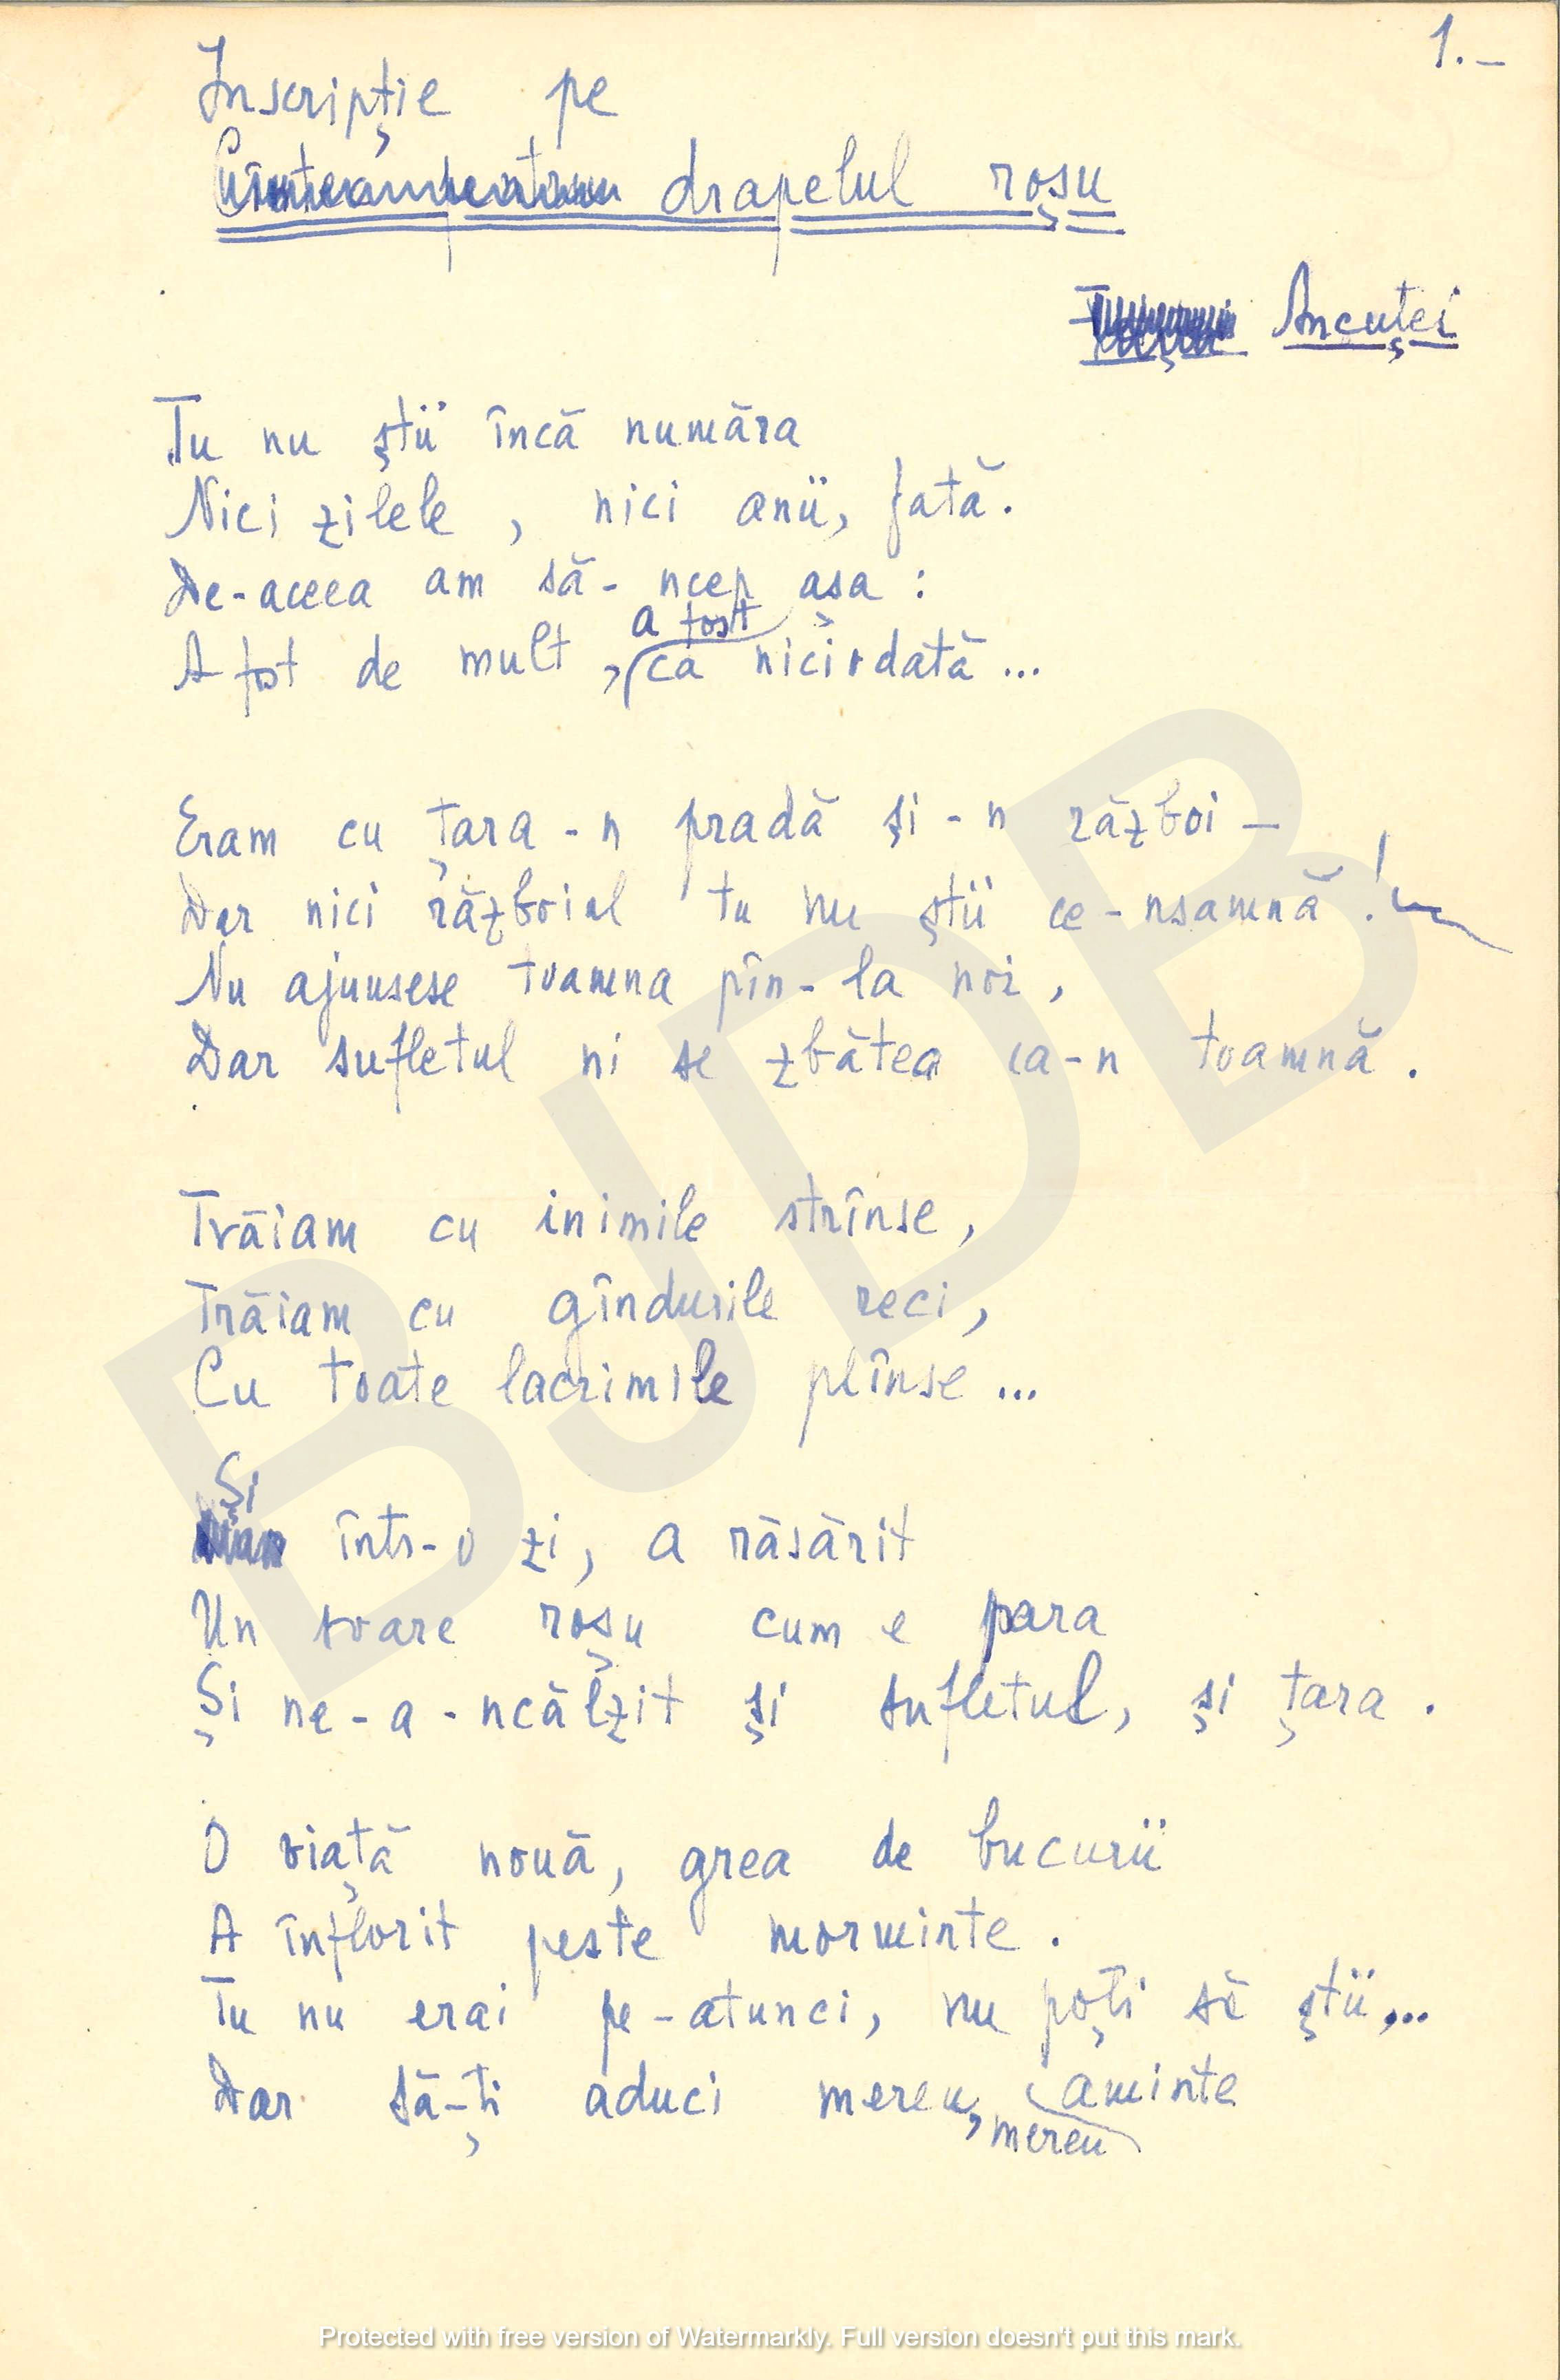 1.-
Inscripție pe
drapelul roșu
Ancuței
Tu nu știi încă număra
Nici zilele, nici anii, fată.
De-aceea am să-ncep așa:
a fost
A fost de mult, ca niciodată...
Eram cu țara-n pradă și-n război —
Dar nici războiul tu nu știi ce-nsamnă!
Nu ajunsese toamna pîn-la noi,
Dar sufletul ni se zbătea ca-n toamnă.
Trăiam cu inimile strînse,
Trăiam cu gîndurile reci,
Cu toate lacrimile plînse...
Și
într-o zi, a răsărit
Un soare roșu cum e para
Și ne-a-ncălzit și sufletul, și țara.
O viață nouă, grea de bucurii
A înflorit peste morminte.
Tu nu erai pe-atunci, nu poți să știi,...
Dar să-ți aduci mereu, aminte
mereu
BJDB
Protected with free version of Watermarkly. Full version doesn't put this mark.